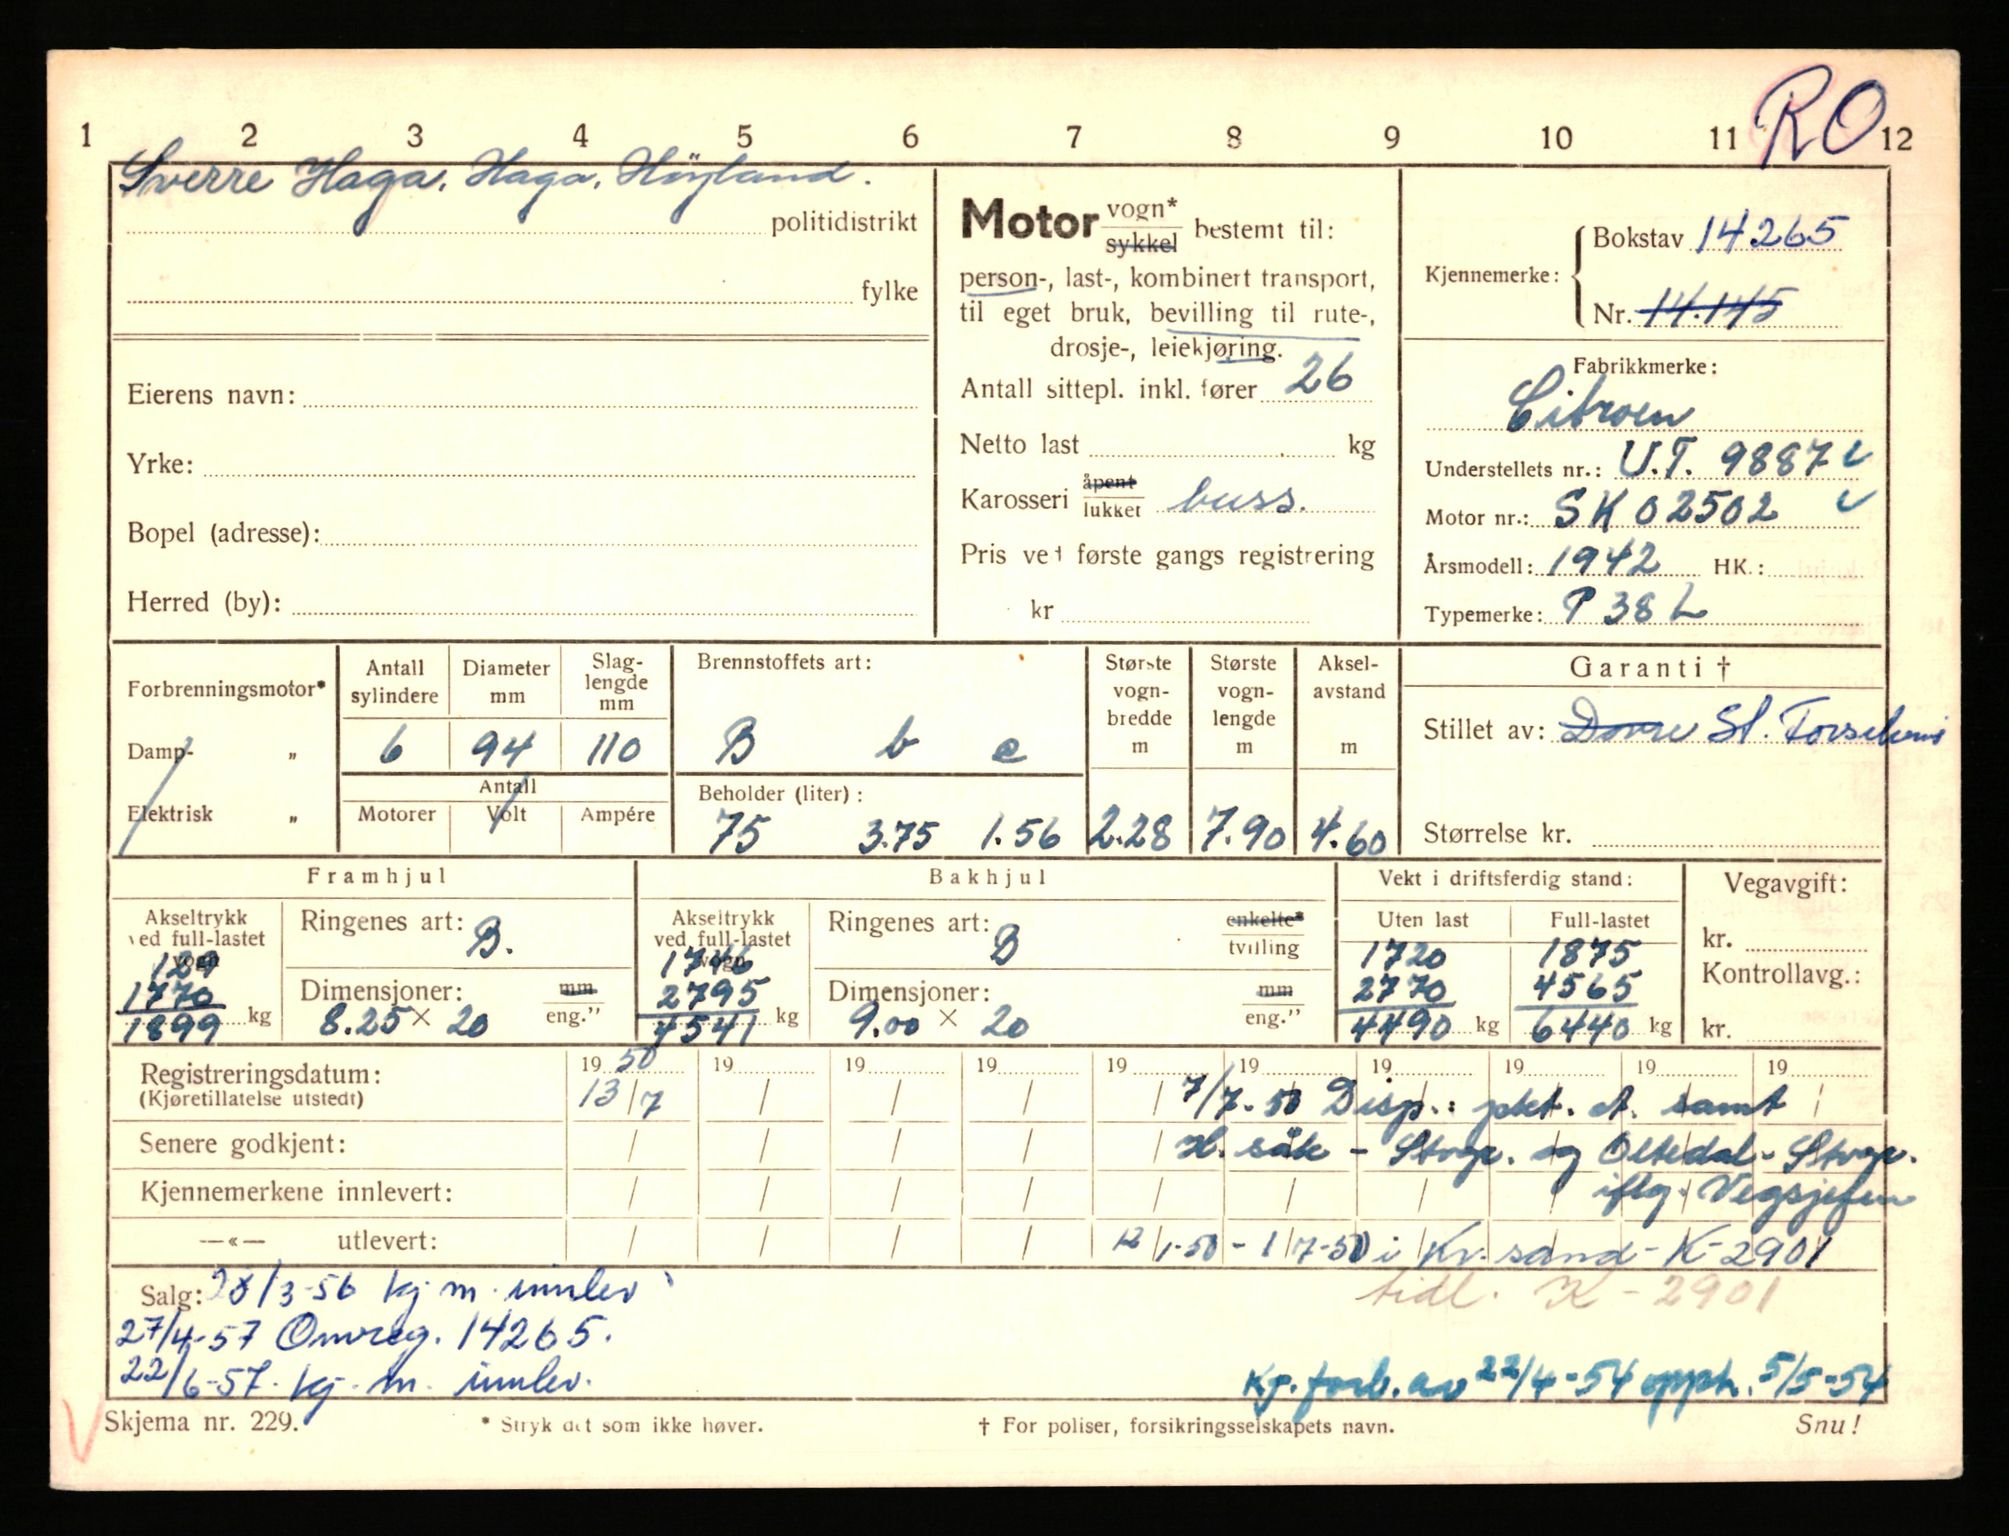 RO
1 2 3 4 5 6 7 8 9 10 11 12
Sverre Haga, Haga, Höyland.
politidistrikt
fylke
Eierens navn:
Yrke:
Bopel (adresse):
Herred (by):
Motor vogn* sykkel bestemt til:
person-, last-, kombinert transport,
til eget bruk, bevilling til rute-,
drosje-, leiekjøring.
Antall sittepl. inkl. fører 26
Netto last kg
Karosseri åpent lukket buss.
Pris ved første gangs registrering
kr
Kjennemerke: Bokstav 14265
Nr. 14.145
Fabrikkmerke:
Citroen
Understellets nr.: U.T. 9887
Motor nr.: SK 02502
Årsmodell: 1942 HK.:
Typemerke: P 38 L
Forbrenningsmotor*
Damp- „
Elektrisk „
Antall sylindere Diameter mm Slag-lengde mm
6 94 110
Antall
Motorer Volt Ampére
Brennstoffets art:
B b e
Beholder (liter):
75 3.75 1.56
Største vogn-bredde m Største vogn-lengde m Aksel-avstand m
2.28 7.90 4.60
Garanti †
Stillet av: Dovre St.
Størrelse kr.
Framhjul
Akseltrykk ved full-lastet vogn
129
1770
1899 kg
Ringenes art: B.
Dimensjoner: mm
8.25 × 20 eng.”
Bakhjul
Akseltrykk ved full-lastet vogn
1746
2795
4541 kg
Ringenes art: B enkelte* tvilling
Dimensjoner: mm
9.00 × 20 eng.”
Vekt i driftsferdig stand:
Uten last Full-lastet
1720 1875
2770 4565
4490 kg 6440 kg
Vegavgift:
kr.
Kontrollavg.:
kr.
19 50 19 19 19 19 19 19 19 19 19
Registreringsdatum: 13/7 7/7-50 Disp.: samt
(Kjøretillatelse utstedt)
Senere godkjent: - Stvgr. og Oltedal - Stvgr.
Kjennemerkene innlevert: iflg. Vegsjefen
—«— utlevert: 12/1-50 - 1/7-50 i Kr.sand - K-2901
tidl. K - 2901
Salg: 28/3-56 kj.m. innlev.
27/4-57 Omreg. 14265.
22/6-57. kj. m. innlev.
Kj. forb. av 22/4-54 opph. 5/5-54
Skjema nr. 229.
* Stryk det som ikke høver.
† For poliser, forsikringsselskapets navn.
Snu!